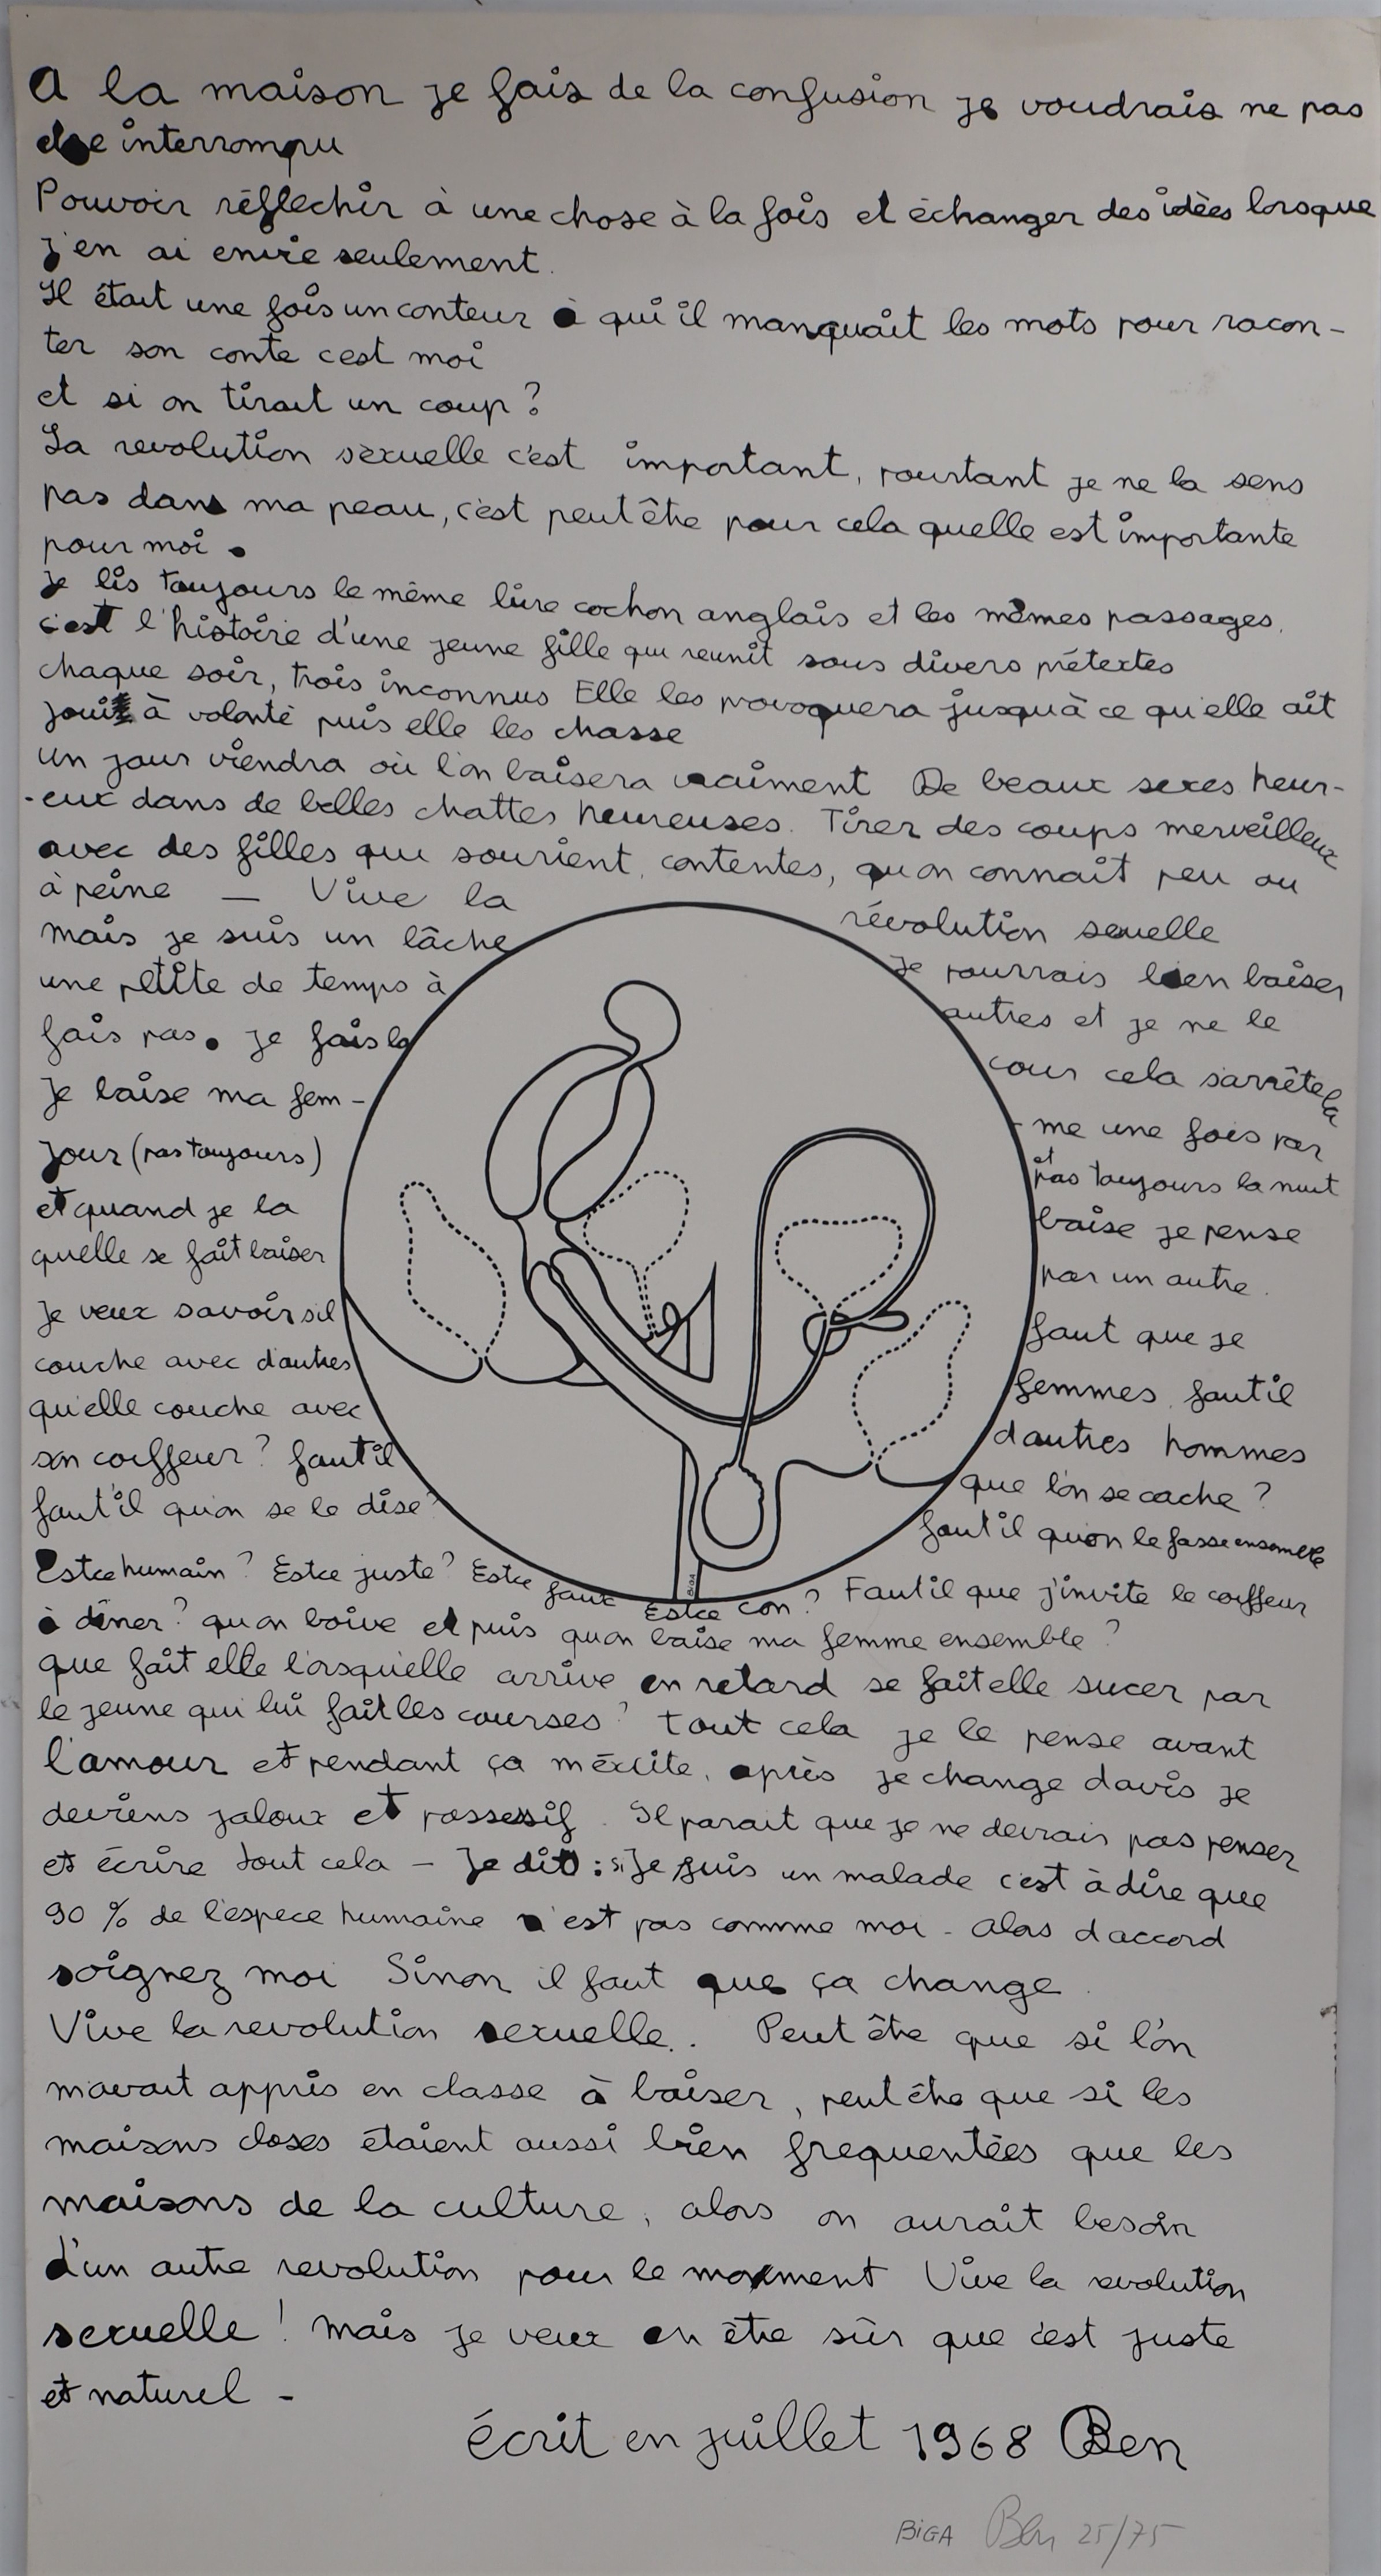 A la maison je fais de la confusion je voudrais ne pas
etre interrompu
Pouvoir réflechir à une chose à la fois et échanger des idées lorsque
j'en ai envie seulement.
Il était une fois un conteur à qui il manquait les mots pour racon-
ter son conte cest moi
et si on tirait un coup ?
La revolution sexuelle c'est important, pourtant je ne la sens
pas dans ma peau, c'est peut être pour cela quelle est importante
pour moi.
je lis toujours le même livre cochon anglais et les mêmes passages.
c'est l'histoire d'une jeune fille qui reunit sous divers prétextes
chaque soir, trois inconnus Elle les provoquera jusquà ce qu'elle ait
jouit à volonté puis elle les chasse
un jour viendra où l'on baisera vraiment De beaux sexes heur-
-eux dans de belles chattes heureuses. Tirer des coups merveilleux
avec des filles qui sourient, contentes, quon connait peu ou
à peine — Vive la révolution sexuelle
mais je suis un lâche je pourrais bien baiser
une petite de temps à autres et je ne le
fais pas. je fais la cour cela s'arrête là
Je baise ma fem- -me une fois par
jour (pas toujours) et pas toujours la nuit
et quand je la baise je pense
quelle se fait baiser par un autre.
Je veux savoir sil faut que je
couche avec d'autres femmes, fautil
qu'elle couche avec dautres hommes
son coiffeur ? fautil que l'on se cache ?
faut'il quon se le dise ? faut'il quon le fasse ensemble
Estce humain ? Estce juste ? Estce faux Estce con ? Fautil que j'invite le coiffeur
à diner ? quon boive et puis quon baise ma femme ensemble ?
que fait elle lorsquelle arrive en retard se faitelle sucer par
le jeune qui lui fait les courses ? tout cela je le pense avant
l'amour et pendant ça méxcite, après je change davis je
deviens jaloux et possessif. Il parait que je ne devrais pas penser
et écrire tout cela — Je dit : si je suis un malade c'est à dire que
90 % de l'espece humaine n'est pas commme moi - alors daccord
soignez moi Sinon il faut que ça change.
Vive la revolution sexuelle.. Peut être que si l'on
mavait appris en classe à baiser, peut être que si les
maisons closes étaient aussi bien frequentées que les
maisons de la culture, alors on aurait besoin
d'un autre revolution pour le moment Vive la revolution
sexuelle ! mais je veux en être sûr que c'est juste
et naturel -
écrit en juillet 1968 Ben
BiGA
BiGA Ben 25/75